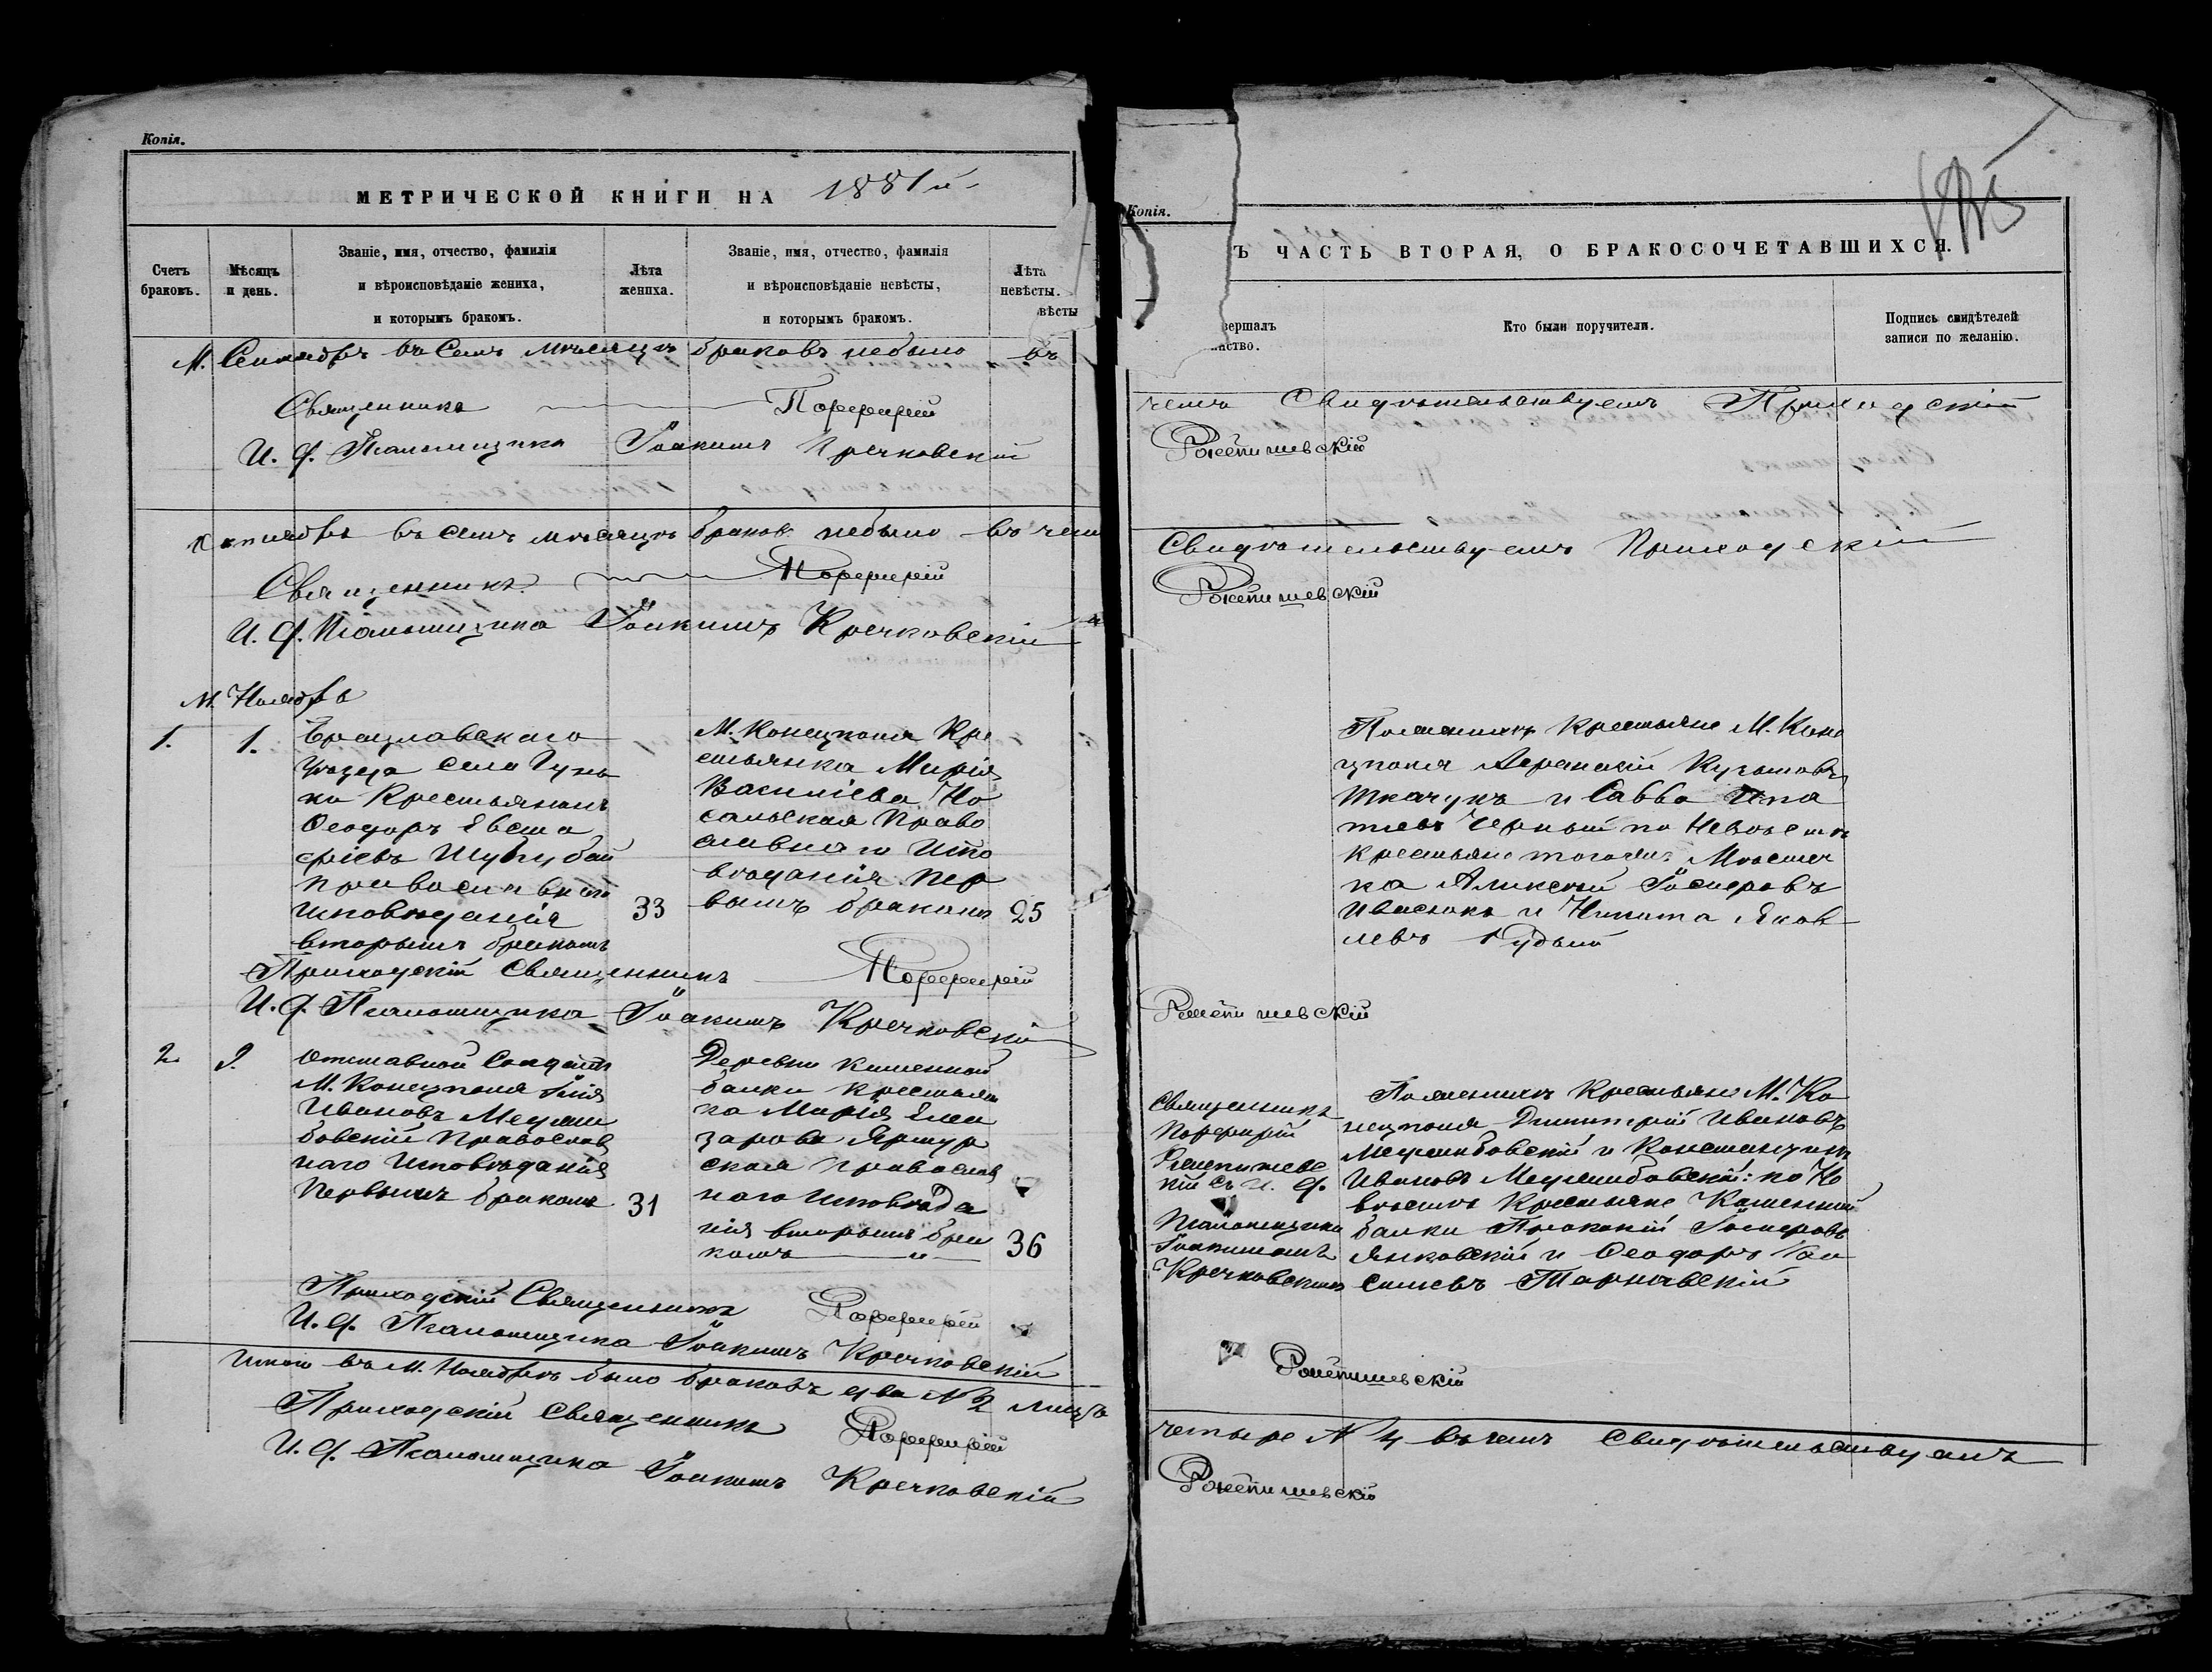 Копія.
МЕТРИЧЕСКОЙ КНИГИ НА 1881 й
Счетъ браковъ.
Мѣсяцъ и день.
Званіе, имя, отчество, фамилія и вѣроисповѣданіе жениха, и которымъ бракомъ.
Лѣта жениха.
Званіе, имя, отчество, фамилія и вѣроисповѣданіе невѣсты, и которымъ бракомъ.
Лѣта невѣсты.
вѣсты
М. Сентябрь въ семъ мѣсяцѣ браковъ небыло въ
Священникъ Порфирій
И. д. Псаломщика Іоакимъ Кречковскій
Октябрь въ семъ мѣсяцѣ браковъ небыло въ чемъ
Священникъ Порфирій
И. д. Псаломщика Іоакимъ Кречковскій
М. Ноябрь
1.
1.
Брацлавскаго
уѣзда села
Крестьянинъ
Ѳеодоръ Евста
фіевъ
православнаго
исповѣданія
вторымъ бракомъ
33
М. Конецполя Кре
стьянка Марія
Василіева Но
сальская Право
славнаго Испо
вѣданія пер
вымъ бракомъ
25
Приходскій Священникъ Порфирій
И. д. Псаломщика Іоакимъ Кречковскій
2
9.
Отставной Солдатъ
М. Конецполя Илія
Ивановъ Меджи
бовскій Православ
наго Исповѣданія
Первымъ бракомъ
31
Деревни Каменной
балки крестьян
ка Марія Елеа
зарова
ская православ
наго Исповѣда
нія вторымъ бра
комъ
36
Приходскій Священникъ Порфирій
И. д. Псаломщика Іоакимъ Кречковскій
Итого въ М. Ноябрѣ было браковъ два № 2 лицъ
Приходскій Священникъ Порфирій
И. д. Псаломщика Іоакимъ Кречковскій
Копія.
Ъ ЧАСТЬ ВТОРАЯ, О БРАКОСОЧЕТАВШИХСЯ.
вершалъ
нство.
Кто были поручители.
Подпись свидѣтелей записи по желанію.
чемъ Свидѣтельствуемъ Приходскій
Рожепишевскій
Свидѣтельствуемъ Приходскій
Рожепишевскій
По женихѣ Крестьяне М. Коне
цполя Афанасій Кузьмовъ
Ткачукъ и Савва Ипа
тіевъ Черный по Невѣстѣ
крестьяне тогоже Мѣстеч
ка Алексѣй Іосифовъ
Ивасюкъ и Никита Яков
левъ Рудый
Рожепишевскій
Священникъ
Порфирій
Рожепишевс
кій съ И. д.
Псаломщика
Іоакимомъ
Кречковскимъ
По женихѣ Крестьяне М. Ко
нецполя Димитрій Ивановъ
Меджибовскій и Константинъ
Ивановъ Меджибовскій: по Не
вѣстѣ Крестьяне Каменной
балки Прокопій Іосифовъ
Янковскій и Ѳеодоръ
Тарнавскій
Рожепишевскій
четыре № 4 въ чемъ Свидѣтельствуемъ
Рожепишевскій